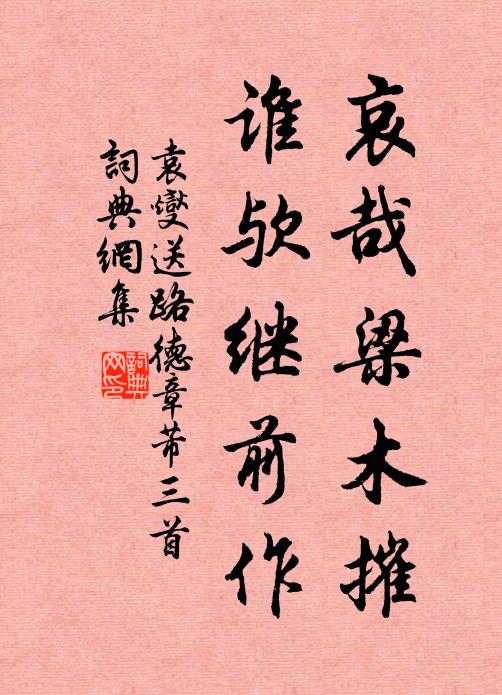 哀哉梁木摧
谁欤继前作
袁燮送路德章芾三首
詞典網集
詞典
网印